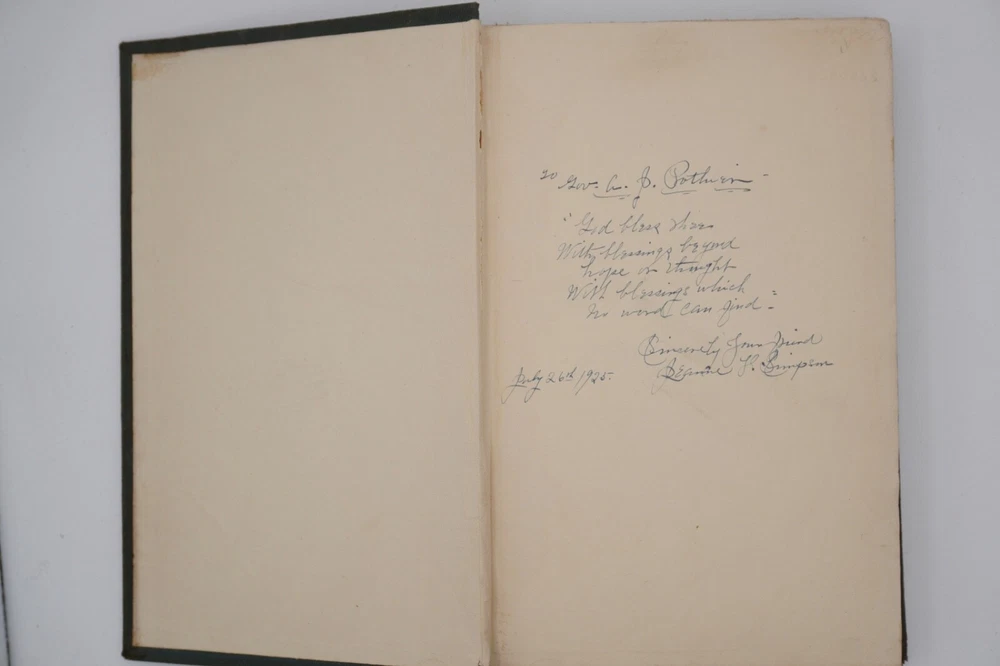 To
Gov. A. J. Pothier
"God bless thee
With blessings beyond
hope or thought
With blessings which
no word can find"
Sincerely Your Friend
S. Simpson
July 26th 1925.